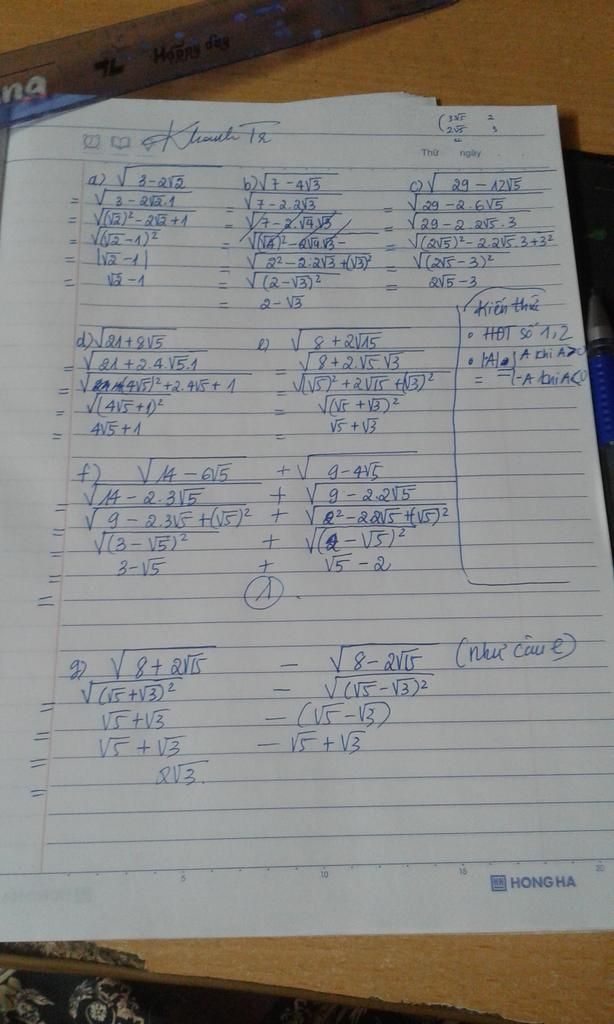 Hoàng đay
na
Khanh Tr
(3√5 2
2√5 3
Thứ ngày
a) √(3-2√2)
= √(3-2√2.1)
= √((√2)²-2√2+1)
= √((√2-1)²)
= |√2-1|
= √2-1
b) √(7-4√3)
= √(7-2.2√3)
= √(7-2.√4√3)
= √((√4)²-2√4√3-
= √(2²-2.2√3+(√3)²)
= √((2-√3)²)
= 2-√3
c) √(29-12√5)
= √(29-2.6√5)
= √(29-2.2√5.3)
= √((2√5)²-2.2√5.3+3²)
= √((2√5-3)²)
= 2√5-3
Kiến thức
• HĐT số 1,2
• |A| A khi A>0
= -A khi A<0
d) √(21+8√5)
= √(21+2.4.√5.1)
= √((4√5)²+2.4√5+1)
= √((4√5+1)²)
= 4√5+1
e) √(8+2√15)
= √(8+2.√5.√3)
= √((√5)²+2√15+(√3)²)
= √((√5+√3)²)
= √5+√3
f) √(14-6√5) + √(9-4√5)
= √(14-2.3√5) + √(9-2.2√5)
= √(9-2.3√5+(√5)²) + √(2²-2.2√5+(√5)²)
= √((3-√5)²) + √((2-√5)²)
= 3-√5 + √5-2
= 1.
g) √(8+2√15) - √(8-2√15) (như câu e)
= √((√5+√3)²) - √((√5-√3)²)
= √5+√3 -(√5-√3)
= √5+√3 -√5+√3
= 2√3.
5 10 15 20
HONG HA